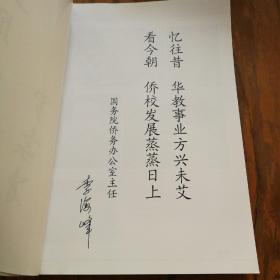 忆往昔 华教事业方兴未艾
看今朝 侨校发展蒸蒸日上
国务院侨务办公室主任
李海峰